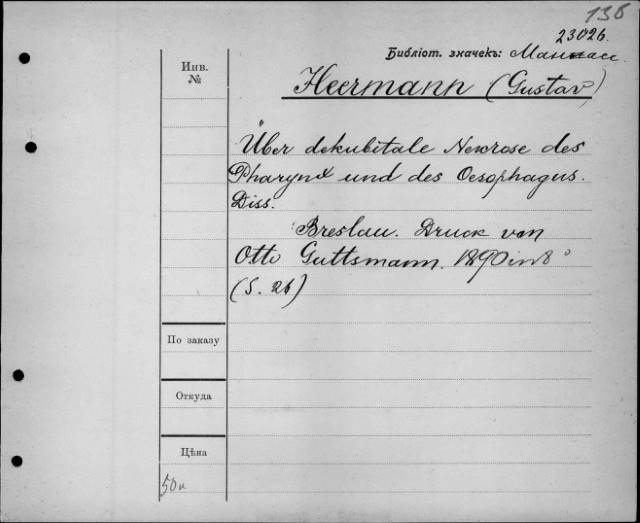 136
23026.
Библіот. значекъ:
Инв.
№
Heermann (Gustav)
Über dekubitale Nekrose des
Pharynx und des Oesophagus.
Diss.
Breslau. Druck von
Otto Guttsmann. 1890 in 8°
(S. 26)
По заказу
Откуда
Цѣна